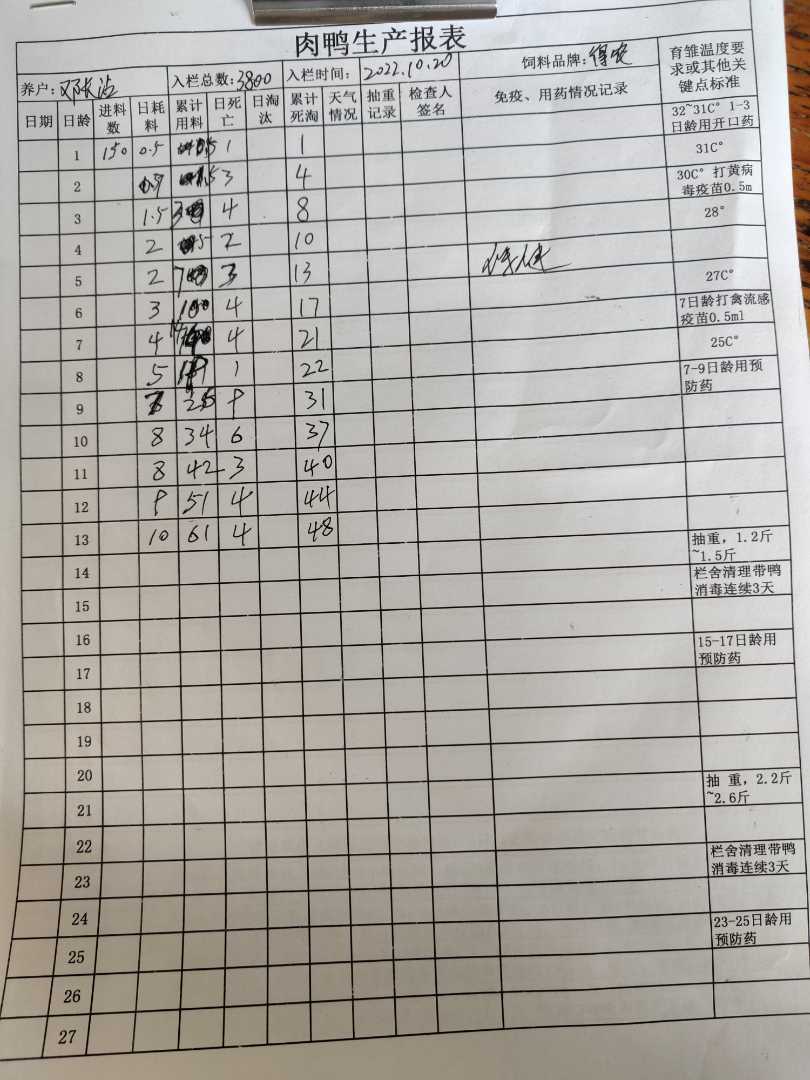 肉鸭生产报表
养户: 入栏总数:3800 入栏时间: 2022.10.20 饲料品牌:得农 育雏温度要求或其他关键点标准
日期 日龄 进料数 日耗料 累计用料 日死亡 日淘汰 累计死淘 天气情况 抽重记录 检查人签名 免疫、用药情况记录
32~31C° 1-3日龄用开口药
1 150 0.5 1 1 31C°
2 3 4 30C° 打黄病毒疫苗0.5m
3 1.5 4 8 28°
4 2 2 10
5 2 3 13 27C°
6 3 4 17 7日龄打禽流感疫苗0.5ml
7 4 4 21 25C°
8 5 1 22 7-9日龄用预防药
9 9 31
10 8 34 6 37
11 8 42 3 40
12 9 51 4 44
13 10 61 4 48 抽重，1.2斤~1.5斤
14 栏舍清理带鸭消毒连续3天
15
16 15-17日龄用预防药
17
18
19
20 抽 重，2.2斤~2.6斤
21
22 栏舍清理带鸭消毒连续3天
23
24 23-25日龄用预防药
25
26
27